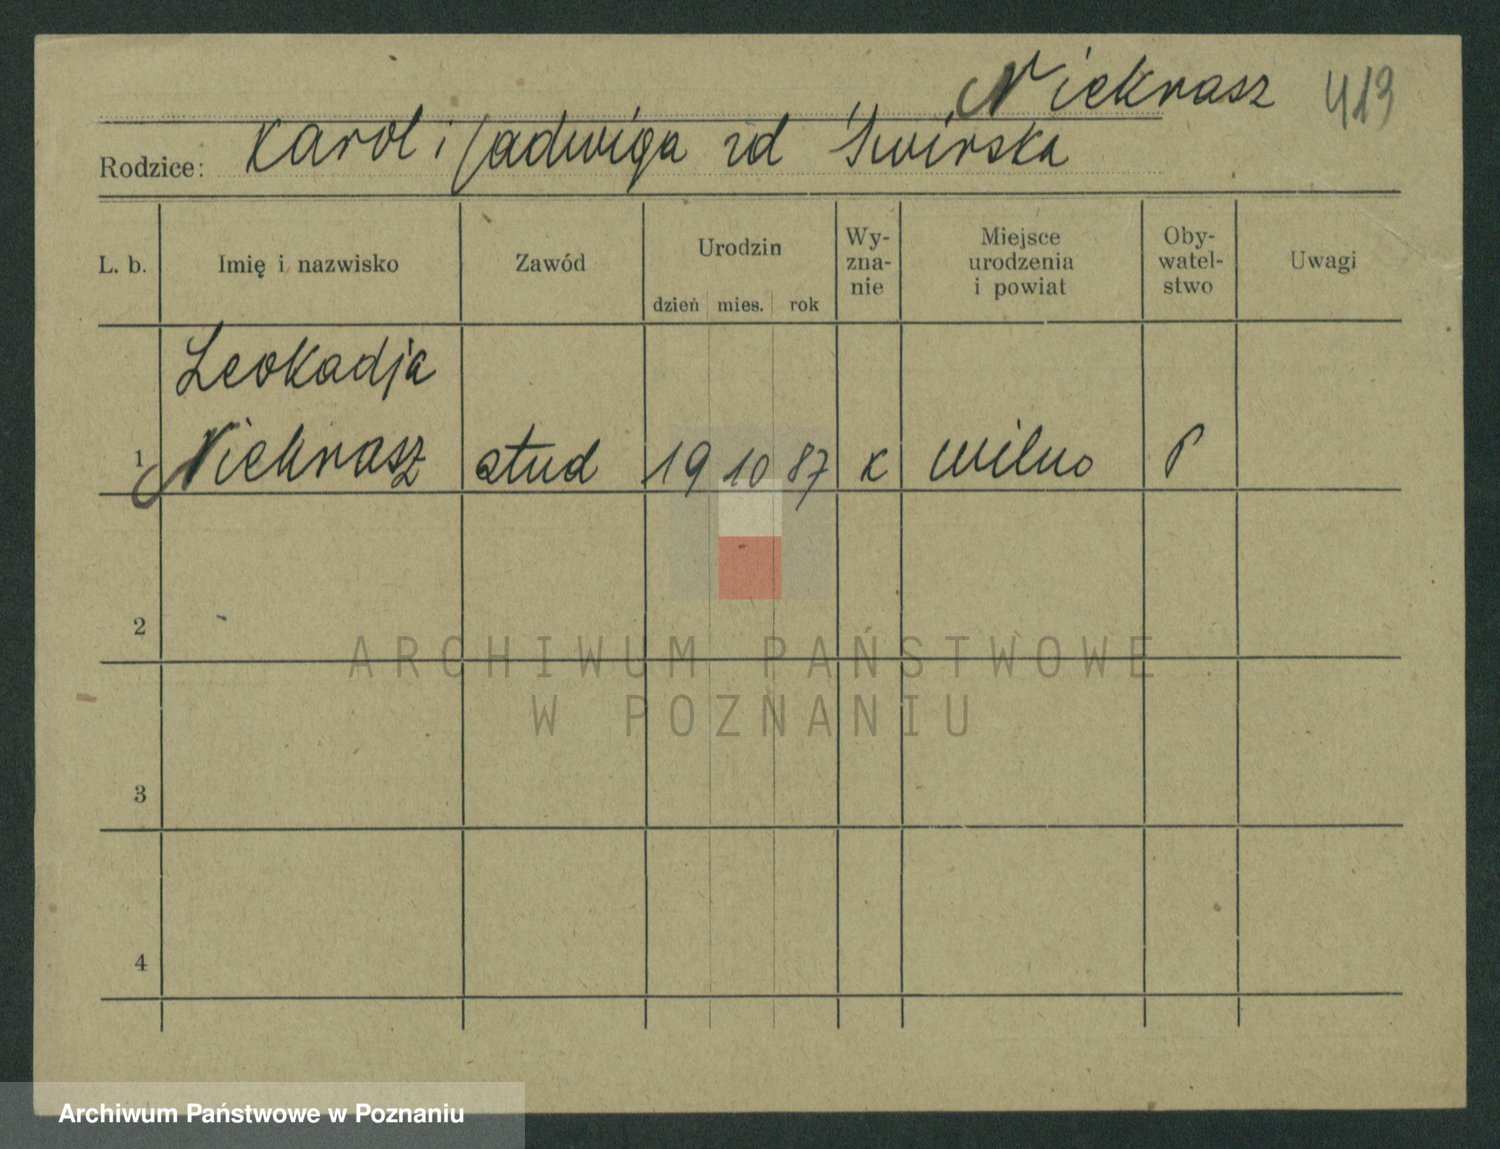 Niekrasz 413
Rodzice: Karol i Jadwiga zd Świrska
L. b. Imię i nazwisko Zawód Urodzin dzień mies. rok Wy-zna-nie Miejsce urodzenia i powiat Oby-watel-stwo Uwagi
Leokadja
1 Niekrasz stud 19 10 87 K Wilno P
2
ARCHIWUM PAŃSTWOWE
W POZNANIU
3
4
Archiwum Państwowe w Poznaniu